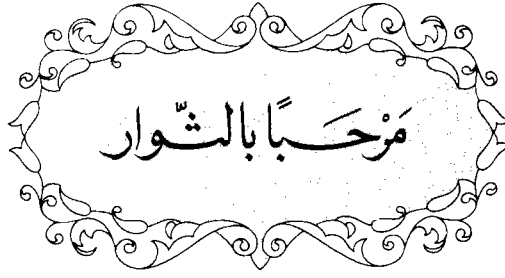 مَرْحَبًا بالثّوار